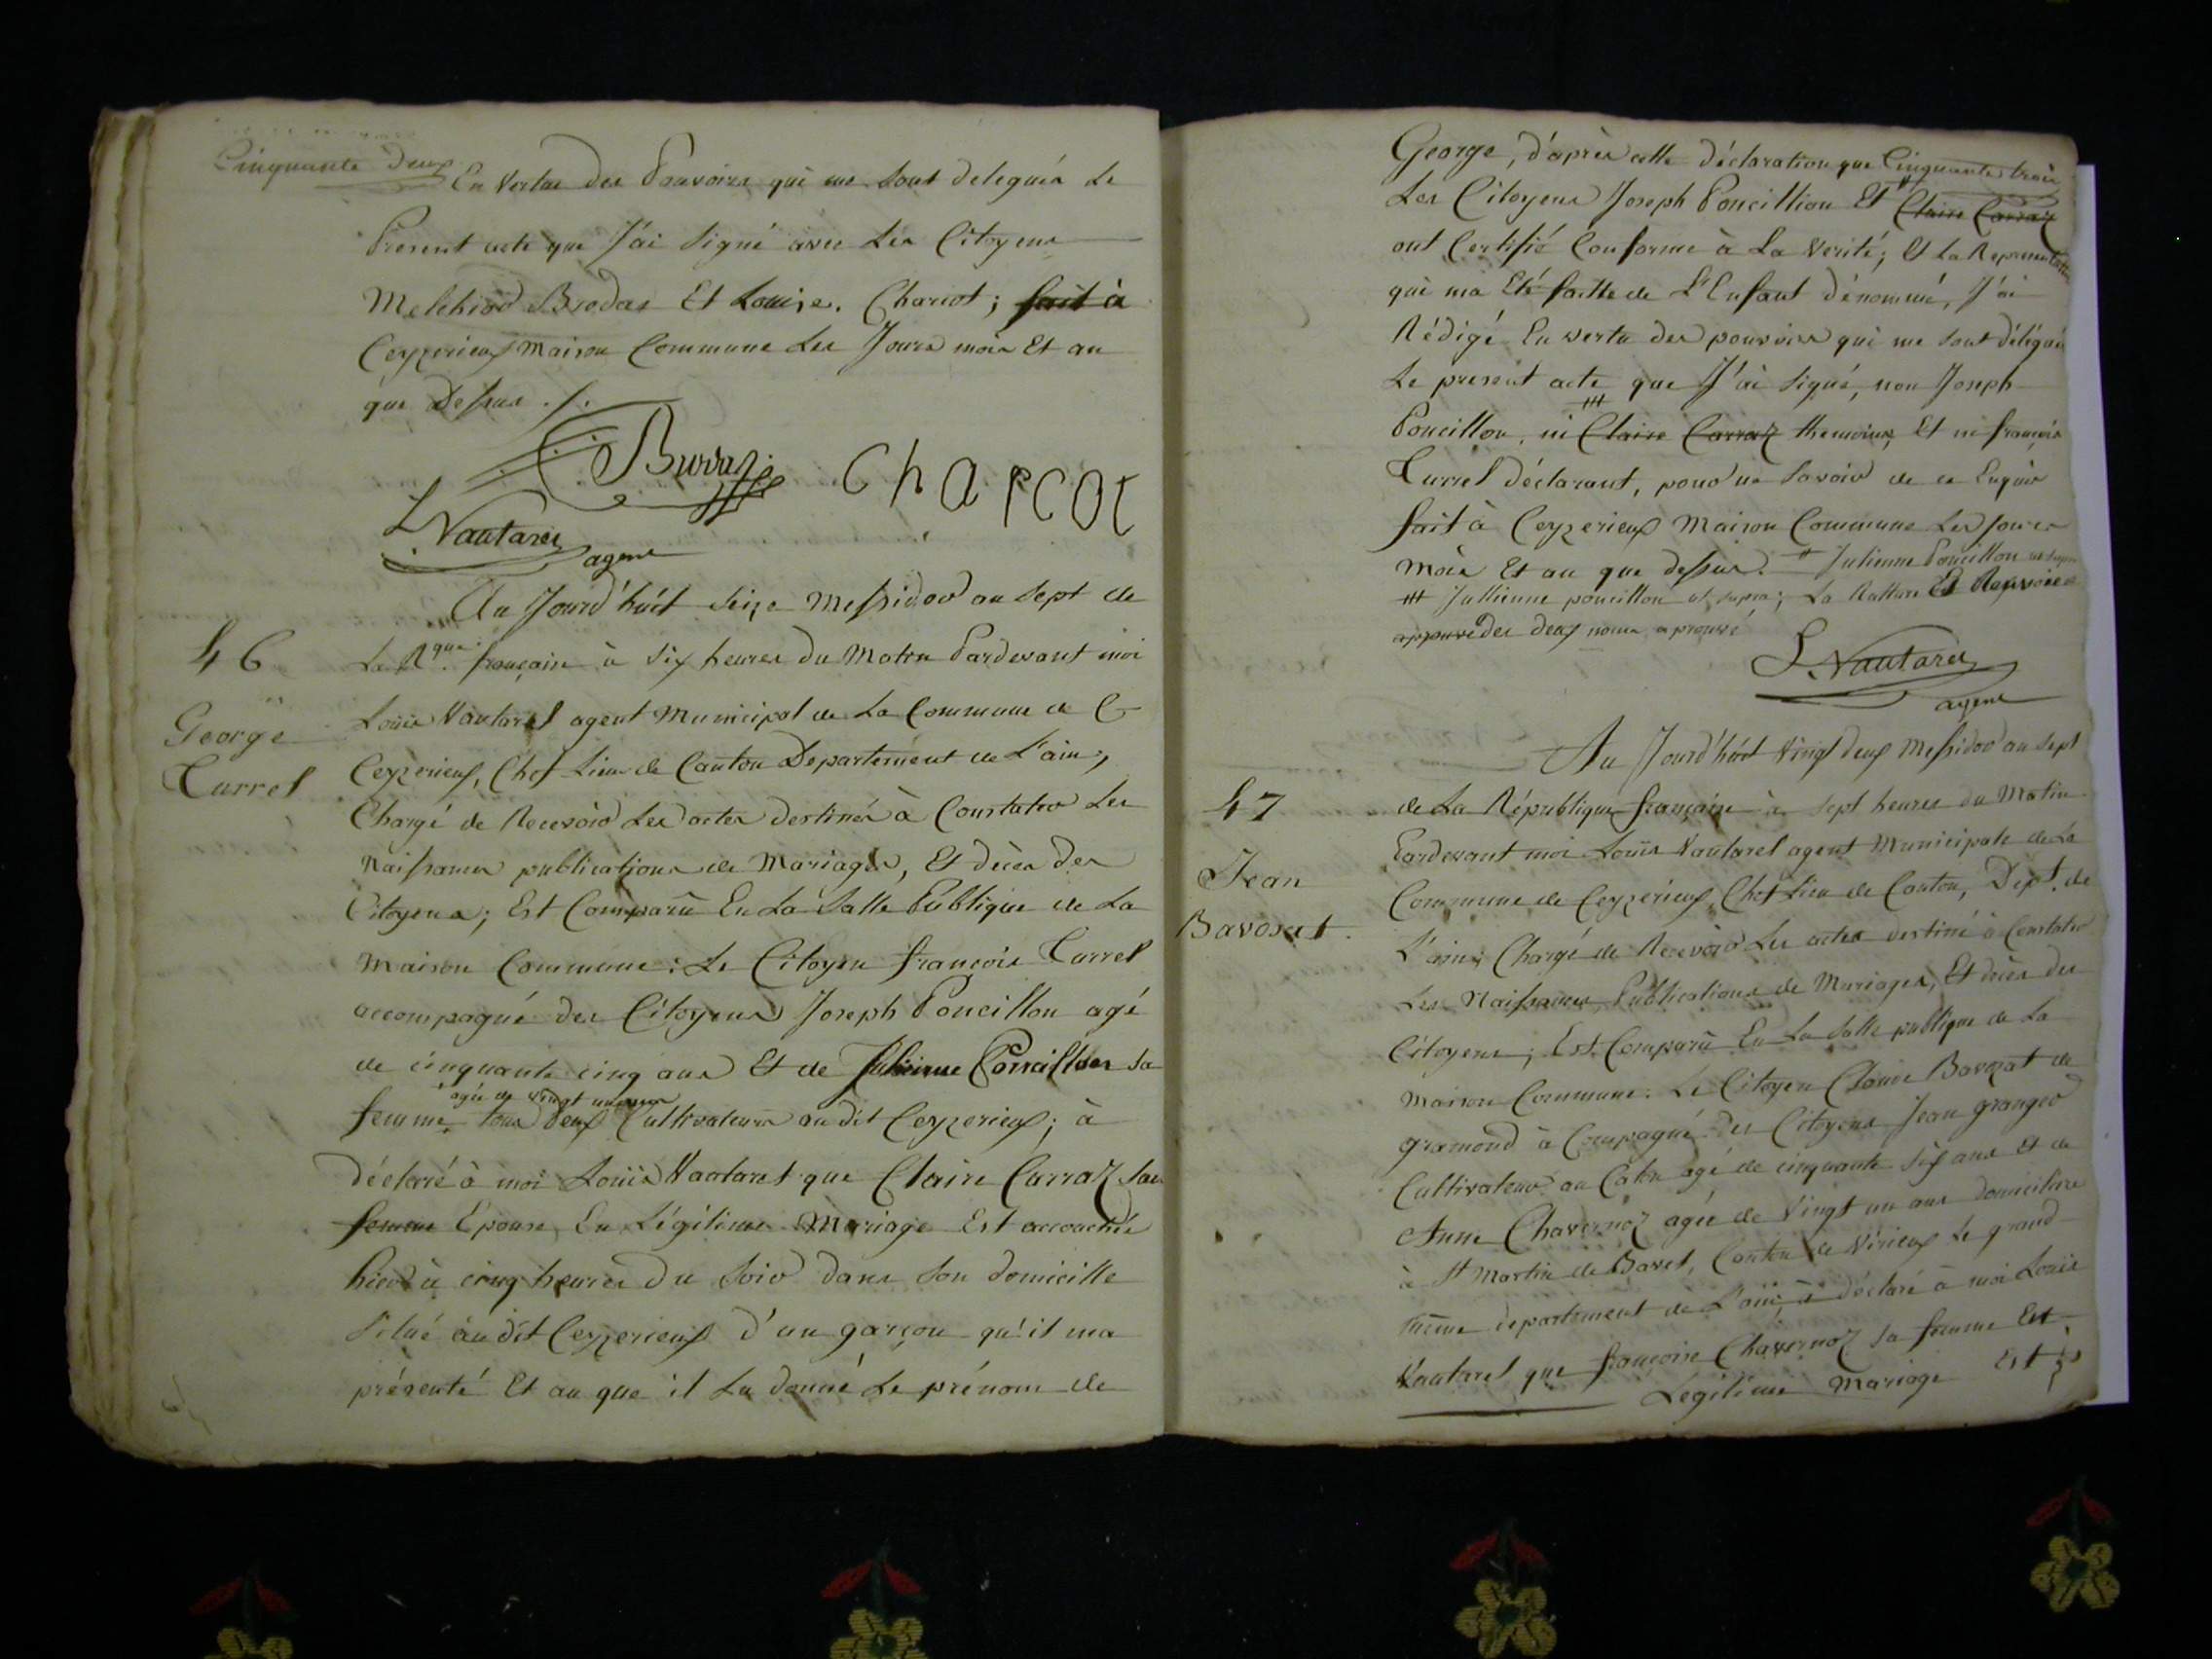 Cinquante deux
En Vertue des Pouvoires qui me sont delegués Le
Présent acte que J'ai Signé avec Les Citoyens
Melchiod Brodas Et Louise. Chariot; fait à
Ceyzerieux Maison Commune Les Jours mois Et an
que Dessus ./.
Burraz CHARCOT
L. Vautaret
agent
Au Jourd'huit Seize Messidor an Sept de
46
La Rque. française à Six heures Du Matin Pardevant moi
George
Turrel
Louis Vautaret agent Municipal de La Commune de C
Ceyzerieux, Chef Lieu de Canton Departement de L'ain,
Chargé de Recevoir Les actes destinés à Constater Les
Naissances publications de Mariages, Et décès des
Citoyens; Est Comparû En La Salle Publique de La
Maison Commune: Le Citoyen françois Turrel
accompagné des Citoyens Joseph Poncillon agé
de cinquante cinq ans Et de Julienne Poncillon sa
agée de vingt un ans
femme, tous deux Cultivateurs audit Ceyzerieux; à
déclaré à moi Louis Vautaret que Claire Carraz sa
femme Epouse, En Légitime Mariage Est accouchée
hier à cinq heures Du Soir dans Son domicille
Situé audit Ceyzerieux d'un garçon qu'il ma
présenté Et au que il La donné Le prénom de
George, d'après cette déclaration que
Cinquante trois
Les Citoyens Joseph Poncillion Et Claire Carraz
ont Certifié Conforme à La Verité; Et La Representation
qui ma Eté faitte de L'Enfant dénommé, J'ai
Rédigé En vertu des pouvoirs qui me sont délégués
Le present acte que J'ai Signé, non Joseph
Poncillon, ni Claire Carraz themoins, Et ni françois
Turrel déclarant, pour ne Savoir de ce Enquis
fait à Ceyzerieux Maison Commune Les Jours
Mois Et an que dessus. # Julienne Poncillon ut supra
## Jullienne poncillon ut supra; La Rature Et Renvoie
appuvé des deux noms approuvé
L. Vautaret
agent
Au Jourd'huit Vingt deux Messidor an Sept
47
de La République française à Sept heures du Matin
Pardevant moi Louis Vautarel agent Municipale de La
Jean
Bavozat.
Commune de Ceyzerieux, Chef Lieu de Canton, Dept. de
L'ain; Chargé de Recevoir Les actes destiné à Constater
Les Naissances, Publications de Mariages, Et décès des
Citoyens; Est Comparû En La Salle publique de La
Maison Commune: Le Citoyen Claude Bavozat de
gramond à Compagné des Citoyens Jean granged
Cultivateur au Caton agé de cinquante Six ans Et de
Anne Chavernoz agée de Vingt un ans domiciliée
à St Martin de Bavel, Canton de Virieux Le grand
Même departement de L'ain; à déclaré à moi Louis
Vautarel que françoise Chavernoz sa femme Est
Légitime Mariage Est